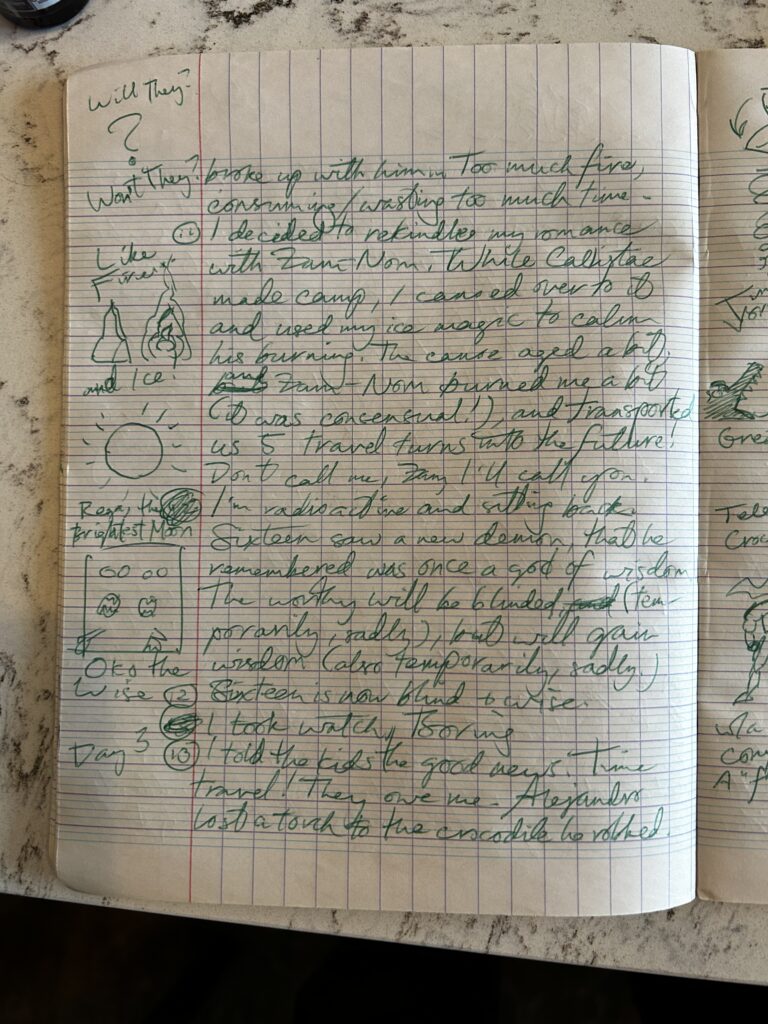 Will They?
?
Won't They?
Like
Fire
and Ice.
Rega, the
Brightest Moon
Oko the
Wise
Day 3
broke up with him. Too much fire,
consuming/wasting too much time.
11 I decided to rekindle my romance
with Zam-Nom. While Callistae
made camp, I canoed over to it
and used my ice magic to calm
his burning. The canoe aged a bit,
Zam-Nom burned me a bit
(it was consensual!), and transported
us 5 travel turns into the future!
Don't call me, I'll call you.
I'm radioactive and sitting back.
Sixteen saw a new demon, that he
remembered was once a god of wisdom
The worthy will be blinded, (tem-
porarily, sadly), but will gain
wisdom (also temporarily, sadly.)
12 Sixteen is now blind + wise.
I took watch, Boring
13 I told the kids the good news. Time
travel! They owe me. Alejandro
lost a torch to the crocodile he robbed.
Gre
Tele
Croc
A "f